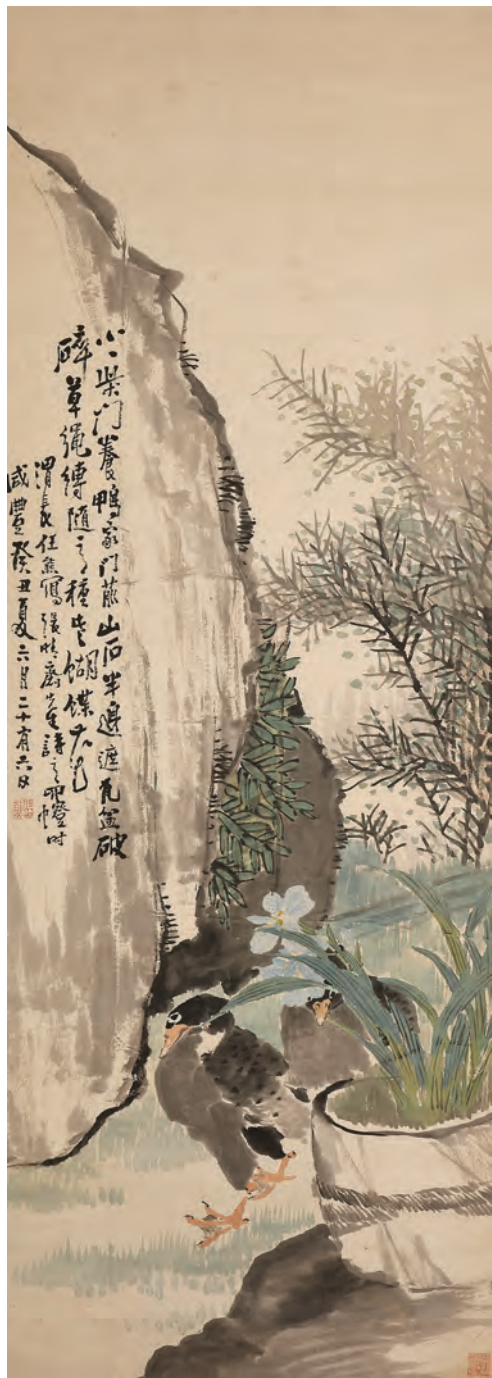 小〻柴門養鴨家門前山石半邊遮瓦盆破
碎草繩縛隨意種些蝴蝶花
渭長任熊寫張齋先生詩之時
咸豐癸丑夏六月二十有六日